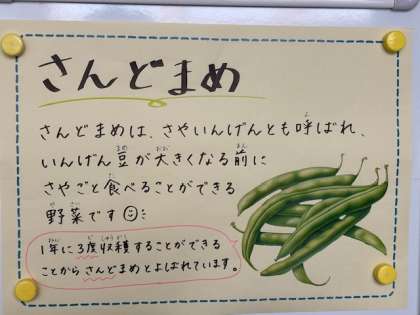 さんどまめ
さんどまめは、さやいんげんとも呼ばれ、
いんげん豆が大きくなる前に
さやごと食べることができる
野菜です
1年に3度収穫することができる
ことからさんどまめとよばれています。